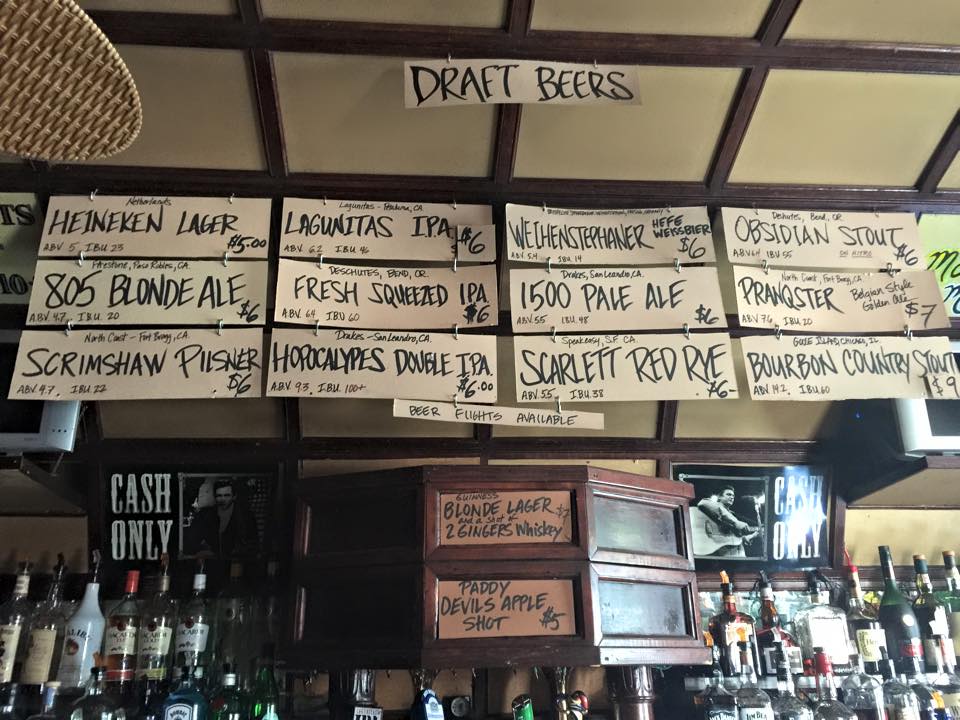 DRAFT BEERS
Netherlands
HEINEKEN LAGER
$5.00
ABV. 5 IBU 23
Lagunitas - Petaluma, CA.
LAGUNITAS IPA
$6
ABV. 6.2 IBU 46
WEIHENSTEPHANER HEFE WEISSBIER
$6
ABV. 5.4 IBU 14
Deshutes, Bend, OR
OBSIDIAN STOUT
$6
ABV 6.4 IBU 55 ON NITRO
Firestone, Paso Robles, CA.
805 BLONDE ALE
$6
ABV. 4.7. IBU. 20
DESCHUTES, BEND, OR.
FRESH SQUEEZED IPA
$6
ABV. 6.4 IBU 60
Drakes, San Leandro, CA.
1500 PALE ALE
$6
ABV. 5.5 IBU. 48
North Coast, Fort Bragg, CA.
PRANQSTER Belgian Style Golden Ale
$7
ABV 7.6 IBU 20
North Coast - Fort Bragg, CA.
SCRIMSHAW PILSNER
$6
ABV. 4.7. IBU. 22
Drakes - San Leandro, CA.
HOPOCALYPES DOUBLE IPA
$6.00
ABV. 9.3. IBU. 100+
Speakeasy, S.F. CA.
SCARLETT RED RYE
$6-
ABV. 5.5. IBU. 38
GOOSE ISLAND, CHICAGO, IL
BOURBON COUNTRY STOUT
$9
ABV 14.2. IBU 60
BEER FLIGHTS AVAILABLE
CASH
ONLY
CASH
ONLY
GUINNESS
BLONDE LAGER $7
and a shot of
2 GINGERS Whiskey
PADDY
DEVILS APPLE
SHOT $5
BACARDI
BACARDI